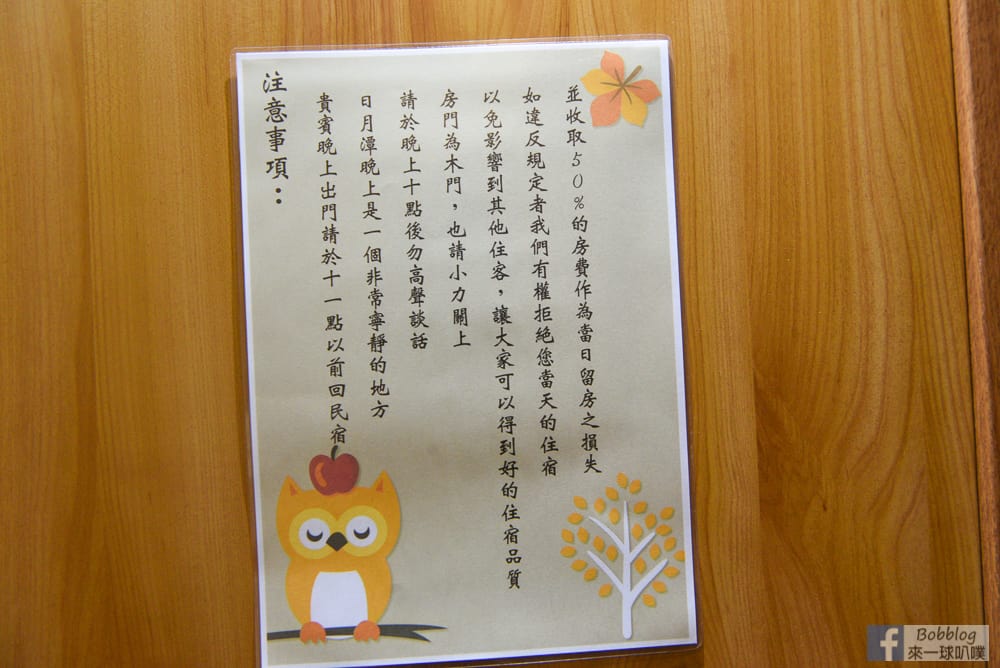 注意事項：
貴賓晚上出門請於十一點以前回民宿
日月潭晚上是一個非常寧靜的地方
請於晚上十點後勿高聲談話
房門為木門，也請小力關上
以免影響到其他住客，讓大家可以得到好的住宿品質
如違反規定者我們有權拒絕您當天的住宿
並收取50%的房費作為當日留房之損失
Bobblog
來一球叭噗